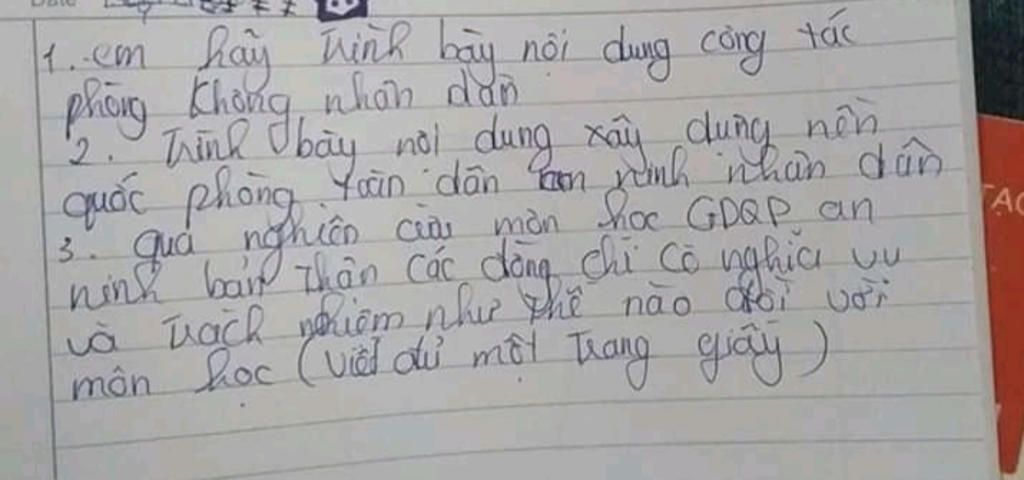 1. em hãy trình bày nội dung công tác
phòng không nhân dân
2. Trình bày nội dung xây dựng nền
quốc phòng toàn dân an ninh nhân dân
3. qua nghiên cứu môn học GDQP an
ninh bản thân các đồng chí có nghĩa vụ
và trách nhiệm như thế nào đối với
môn học (viết đủ một trang giấy)